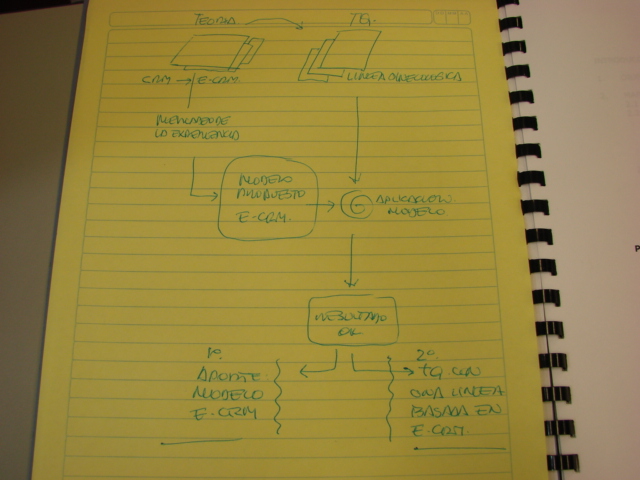 TEORIA
TG.
CRM → E-CRM.
LINEA GINECOLOGICA
MERCADEO DE
LA EXPERIENCIA
MODELO
PROPUESTO
E-CRM.
APLICACION
MODELO
RESULTADO
1º.
APORTE
MODELO
E-CRM
2º.
TG CON
UNA LINEA
BASADA EN
E-CRM.